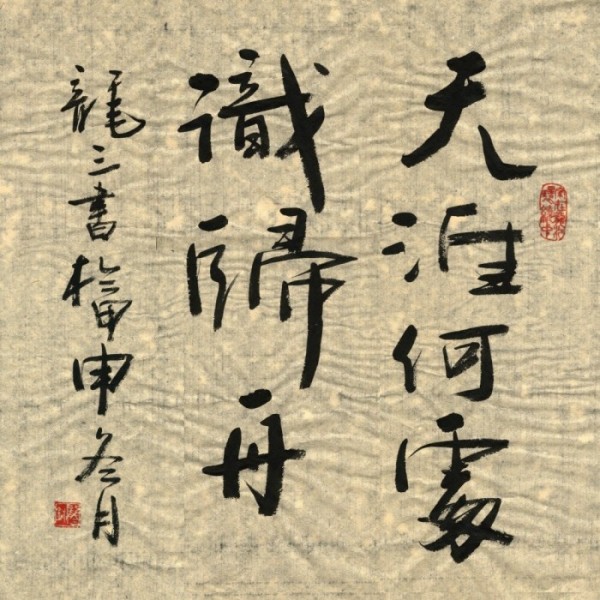 天涯何處
識歸舟
龍三書於甲申冬月